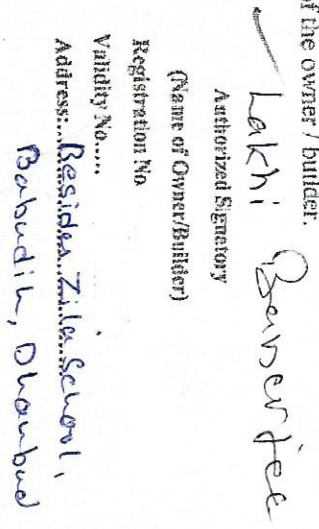 of the owner / builder.
Lakhi Banerjee
Authorized Signatory
(Name of Owner/Builder)
Registration No
Validity No.....
Address:...Besides Zila School,
Babudih, Dhanbad